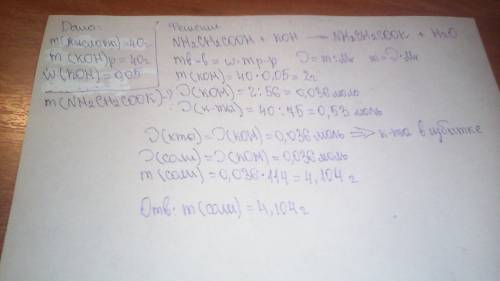 Дано:
m(кислоты)=40г
m(KOH)р=40г
w(KOH)=0,05
m(NH2CH2COOK)-?
Решение:
NH2CH2COOH + KOH → NH2CH2COOK + H2O
mв-в = w·mр-р   ν=m:Mr   m=ν·Mr
m(KOH)=40·0,05=2г
ν(KOH)=2:56=0,036моль
ν(к-та)=40:75=0,53 моль
ν(кта)=ν(KOH)=0,036моль ⇒ к-та в избытке
ν(соли)=ν(KOH)=0,036моль
m(соли)=0,036·114=4,104 г
Отв: m(соли)=4,104г